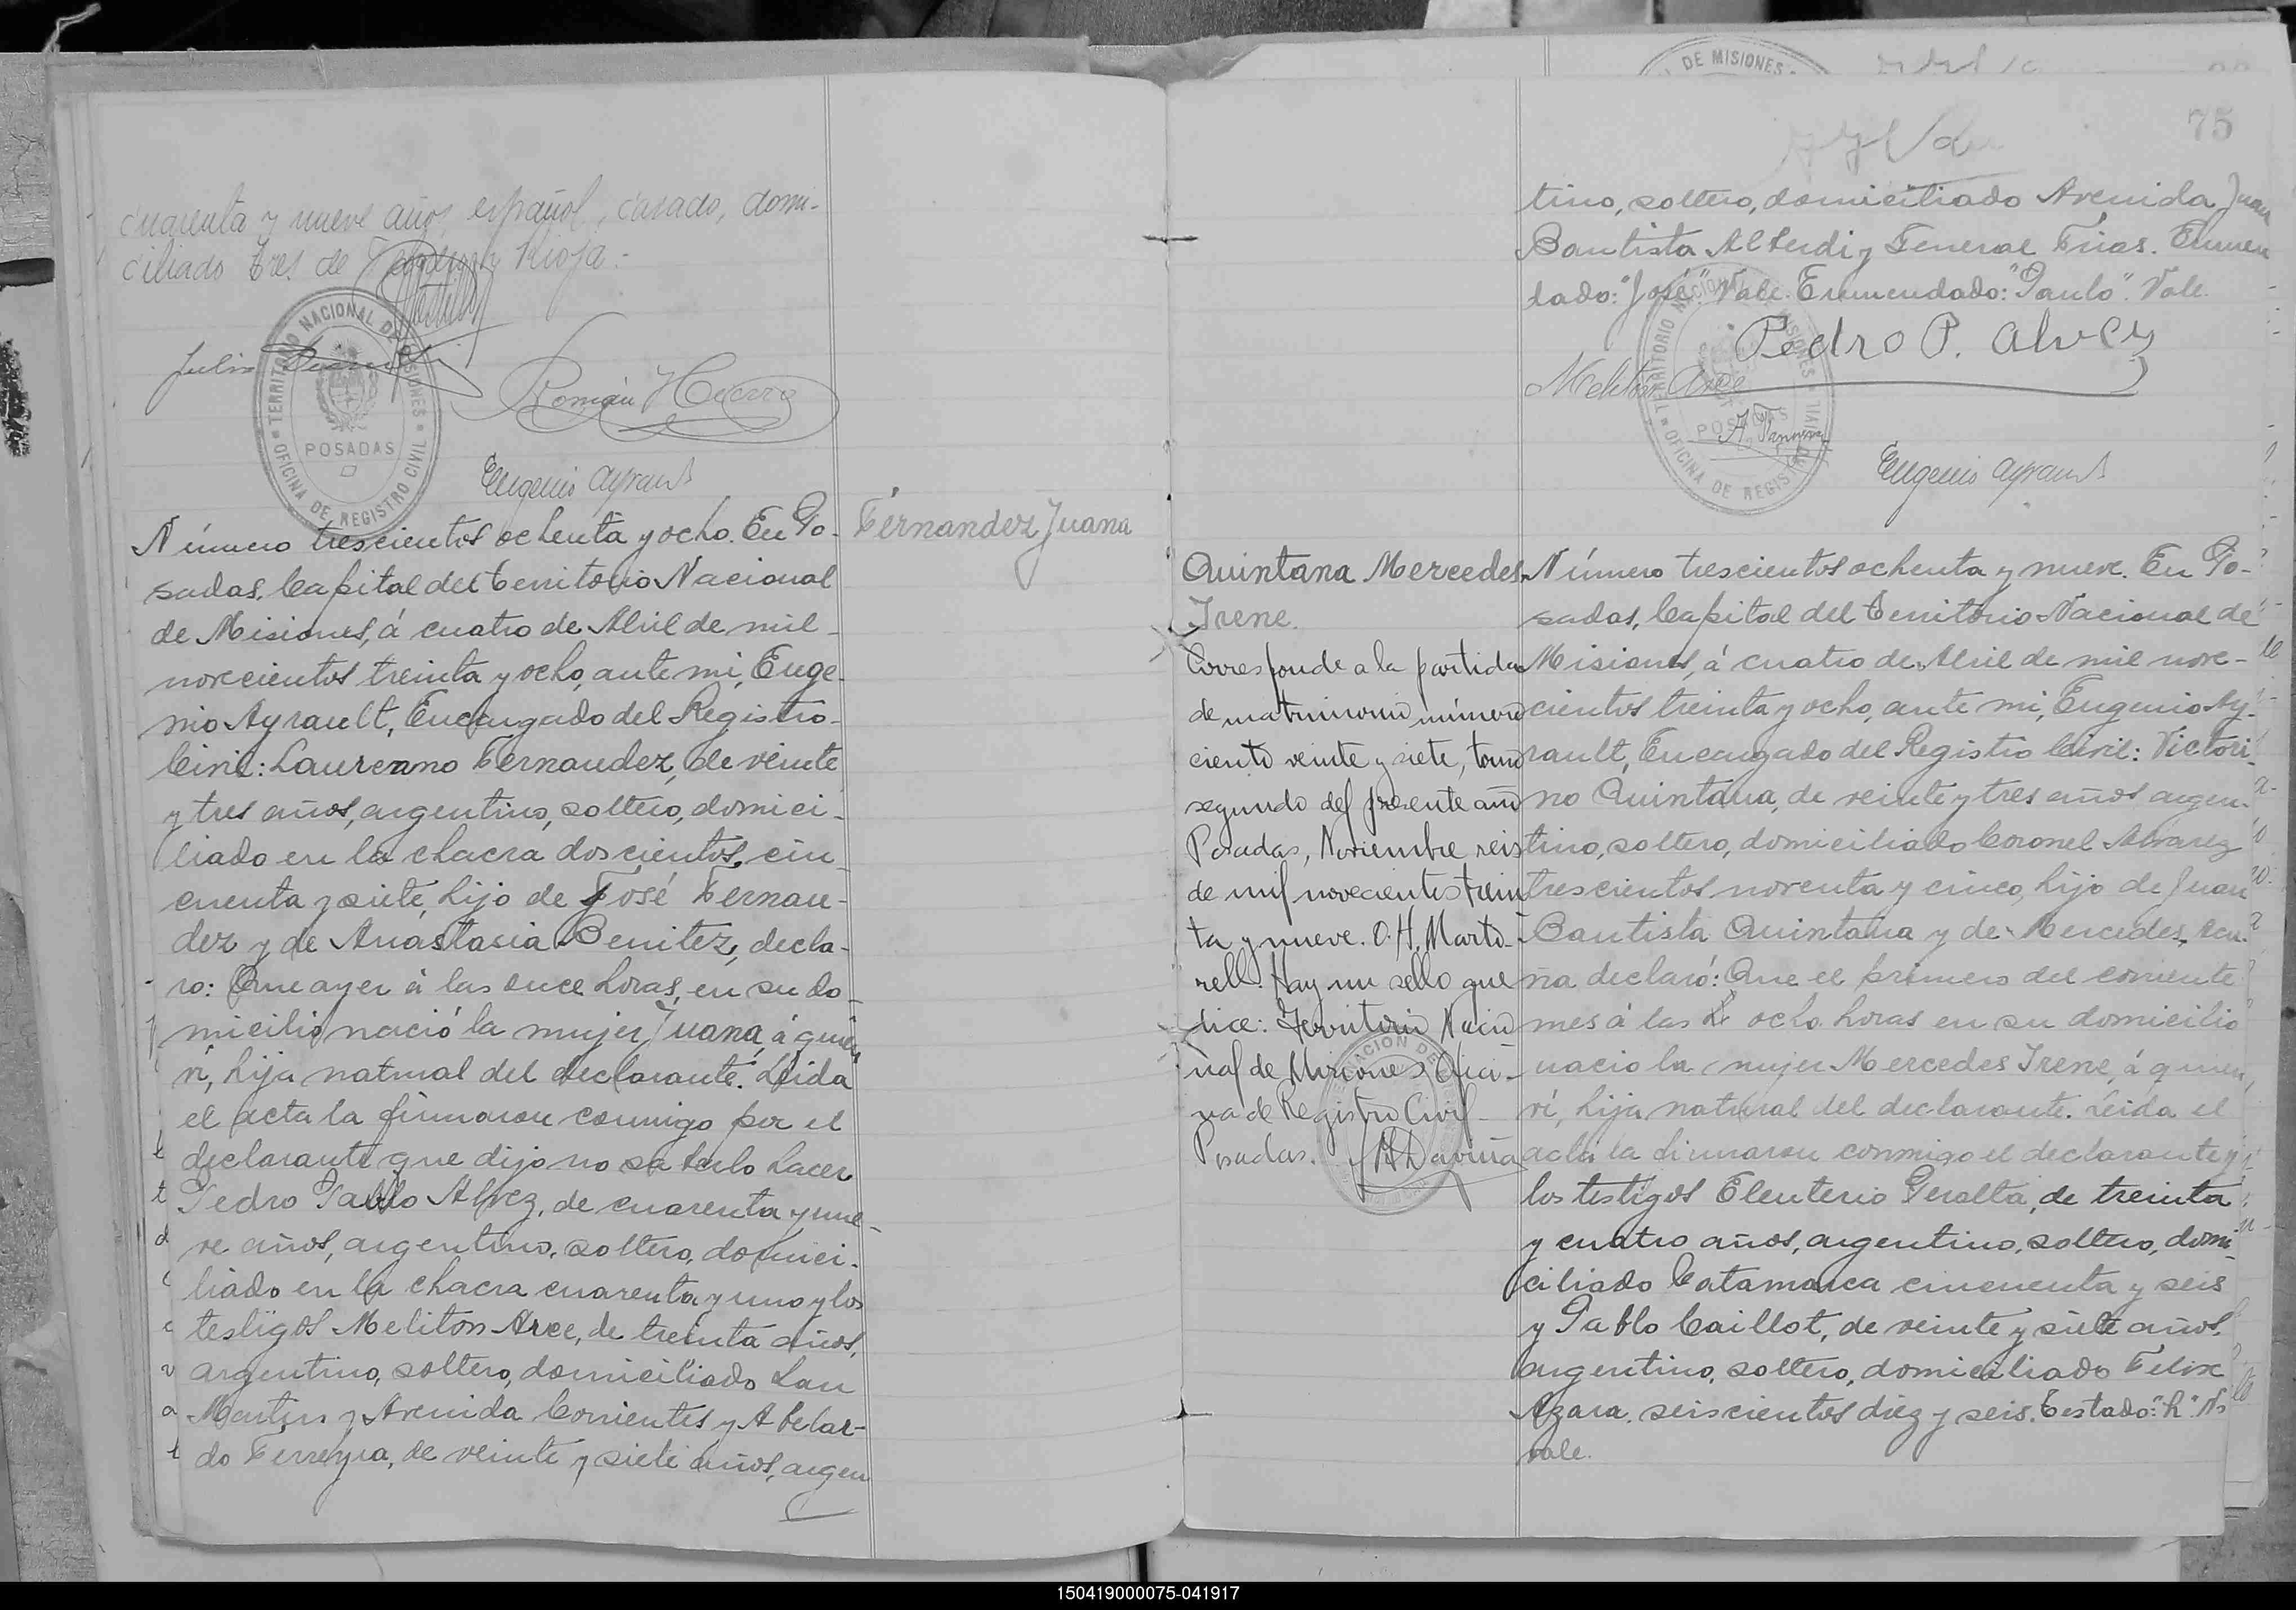 cuarenta y nueve años, español, casado, domi-
ciliado tres de Febrero y Rioja:
TERRITORIO NACIONAL DE MISIONES
POSADAS
OFICINA DE REGISTRO CIVIL
Julio
Román Hierro
Eugenio Ayrault
Fernandez Juana
Número trescientos ochenta y ocho. En Po-
sadas, Capital del Territorio Nacional
de Misiones, á cuatro de Abril de mil
novecientos treinta y ocho, ante mi, Euge-
nio Ayrault, Encargado del Registro
Civil: Laureano Fernandez, de veinte
y tres años, argentino, soltero, domici-
liado en la chacra doscientos cin
cuenta y siete, hijo de José Fernan-
dez y de Anastasia Benitez, decla-
ro: Que ayer á las once horas, en su do-
micilio nació la mujer Juana, á quien
ví, hija natural del declarante. Leida
el acta la firmaron conmigo por el
declarante que dijo no saberlo hacer
Pedro Pablo Alvez, de cuarenta y nue-
ve años, argentino, soltero, domici-
liado en la chacra cuarenta y uno y los
testigos Meliton Arce, de treinta años,
argentino, soltero, domiciliado San
Martin y Avenida Corrientes y Abelar-
do Ferreyra, de veinte y siete años, argen
DE MISIONES
75
tino, soltero, domiciliado Avenida Juan
Bautista Alberdi y General Frias. Enmen
dado: "José" Vale. Enmendado: "Pablo". Vale.
Pedro P. Alvez
Meliton Arce
TERRITORIO NACIONAL DE MISIONES
POSADAS
OFICINA DE REGISTRO CIVIL
Eugenio Ayrault
Quintana Mercedes
Irene.
Corresponde a la partida
de matrimonio número
ciento veinte y siete, tomo
segundo del presente año
Posadas, Noviembre seis
de mil novecientos trein
ta y nueve. O. H. Marto-
rell. Hay un sello que
dice: Territorio Nacio
nal de Misiones Ofici-
na de Registro Civil
Posadas.
Número trescientos ochenta y nueve. En Po-
sadas, Capital del Territorio Nacional de
Misiones, á cuatro de Abril de mil nove-
cientos treinta y ocho, ante mi, Eugenio Ay-
rault, Encargado del Registro Civil: Victori-
no Quintana, de veinte y tres años argen-
tino, soltero, domiciliado Coronel Alvarez
trescientos noventa y cinco, hijo de Juan
Bautista Quintana y de Mercedes Acu-
ña declaró: Que el primero del corriente
mes á las h ocho horas en su domicilio
nacio la mujer Mercedes Irene, á quien
ví, hija natural del declarante. Leida el
acta la firmaron conmigo el declarante y
los testigos Eleuterio Peralta, de treinta
y cuatro años, argentino, soltero, domi-
ciliado Catamarca cincuenta y seis
y Pablo Caillot, de veinte y siete años,
argentino, soltero, domiciliado Felix
Azara seiscientos diez y seis. Testado: "h" No
vale.
150419000075-041917